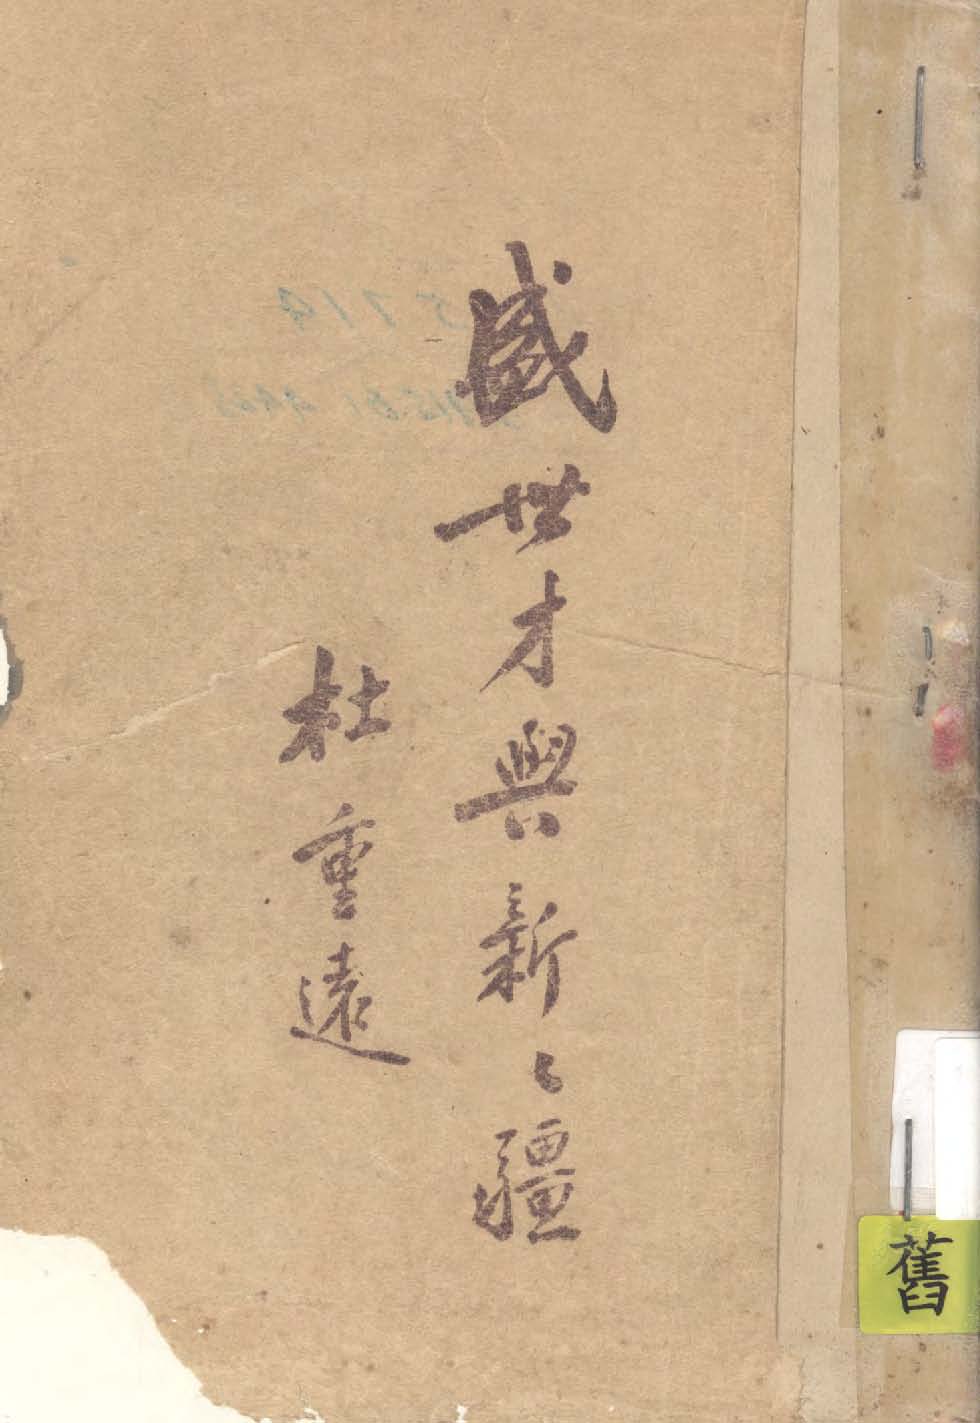 盛世才與新〻疆
杜重遠
舊